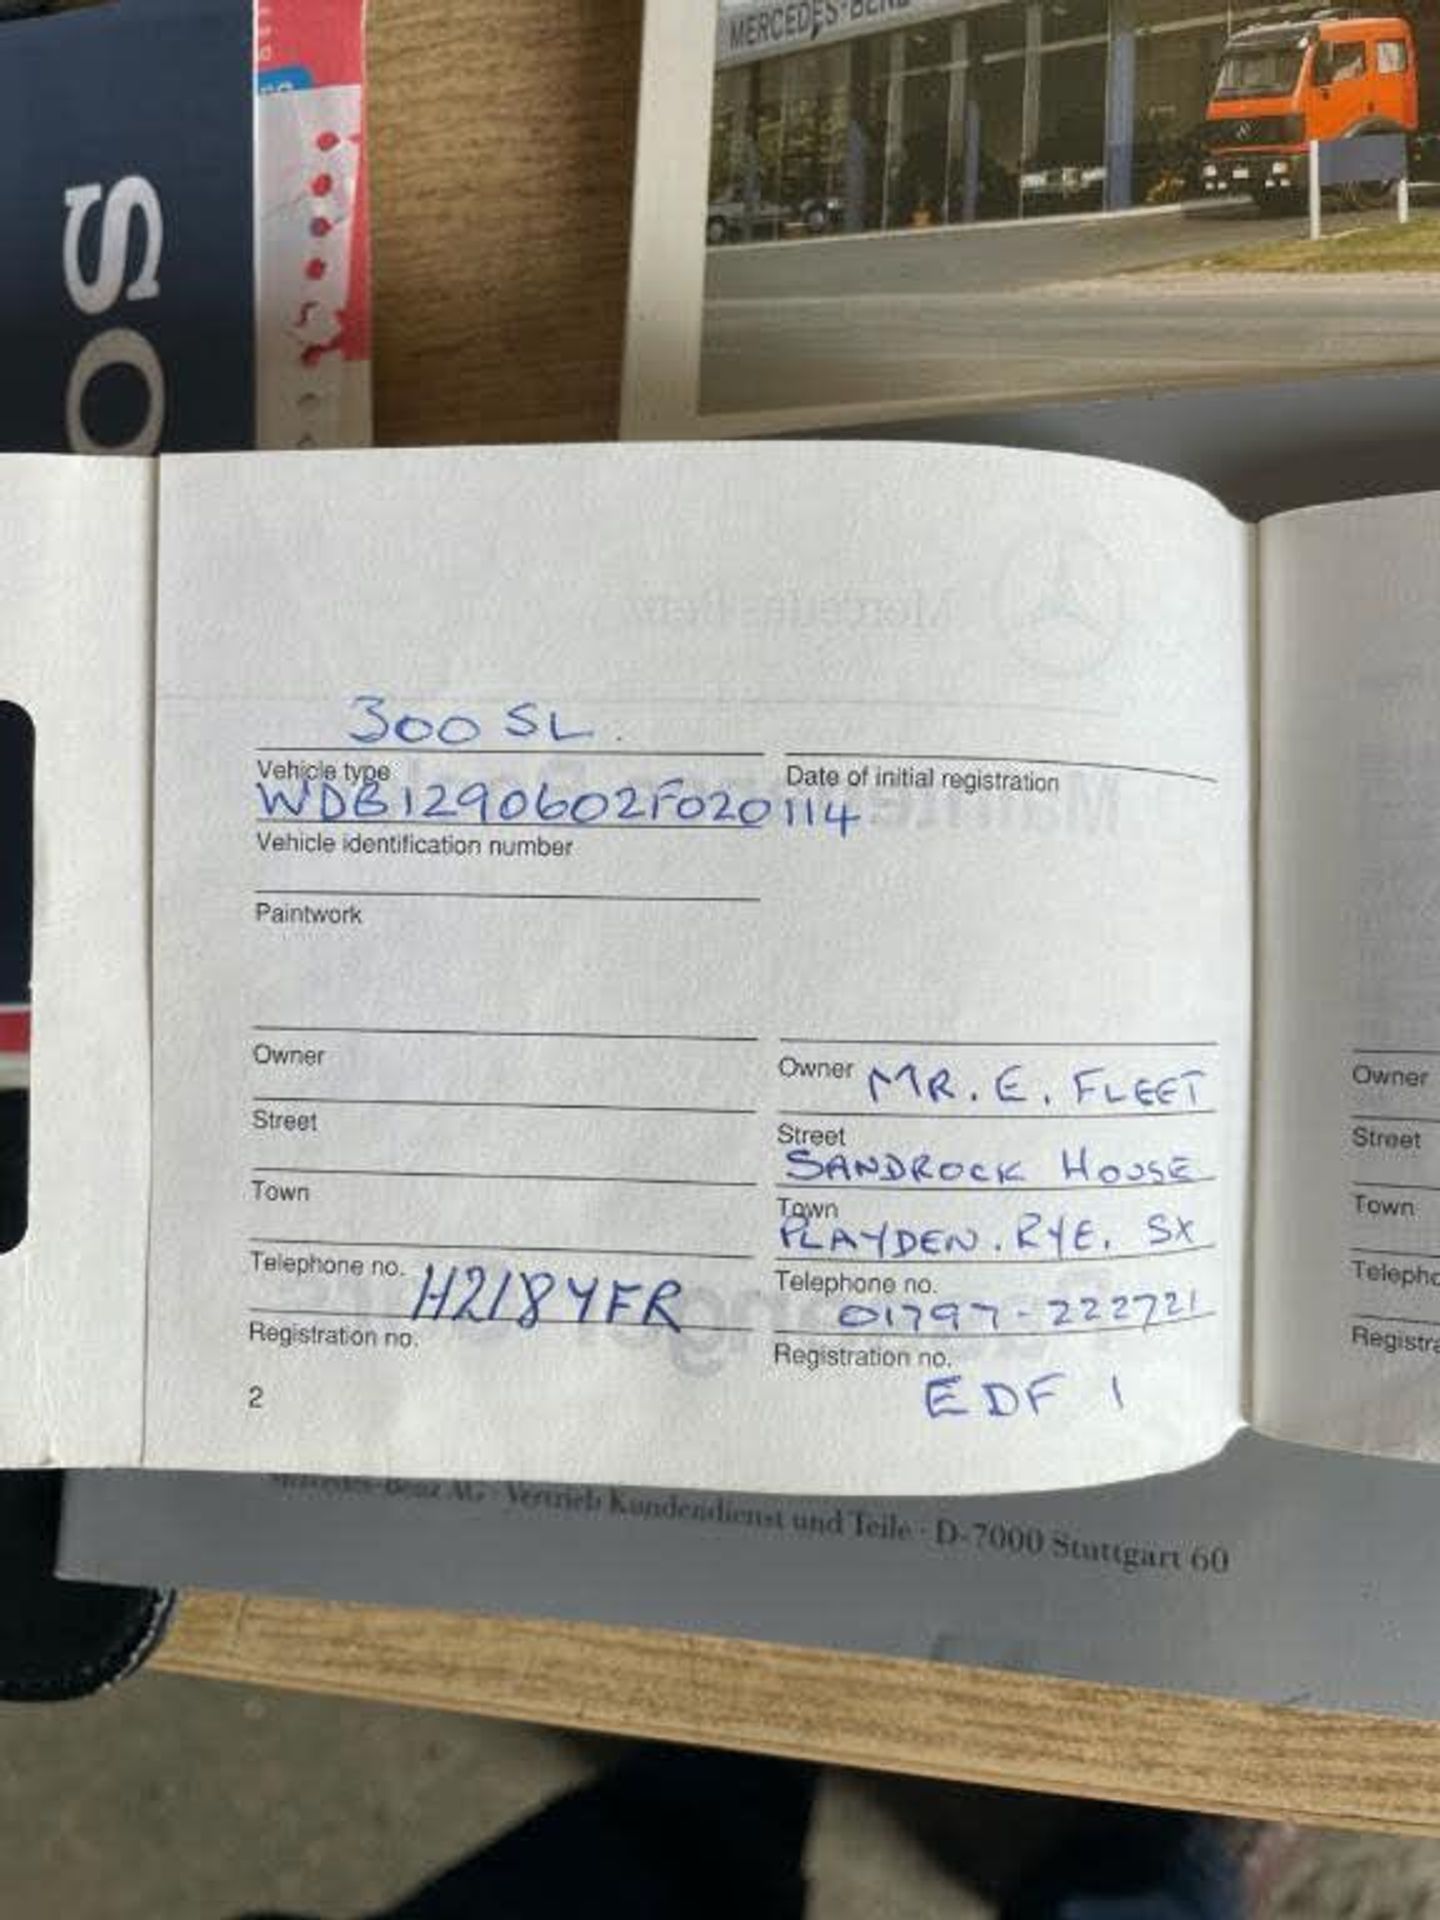 MERCEDES-BENZ
SO
300 SL.
Vehicle type
Date of initial registration
WDB1290602F020114
Vehicle identification number
Paintwork
Owner
Street
Town
Telephone no.
H218YFR
Registration no.
2
Owner MR. E. FLEET
Street
SANDROCK HOUSE
Town
PLAYDEN. RYE. SX
Telephone no.
01797-222721
Registration no.
EDF 1
Owner
Street
Town
Telepho
Registra
Mercedes-Benz AG · Vertrieb Kundendienst und Teile · D-7000 Stuttgart 60